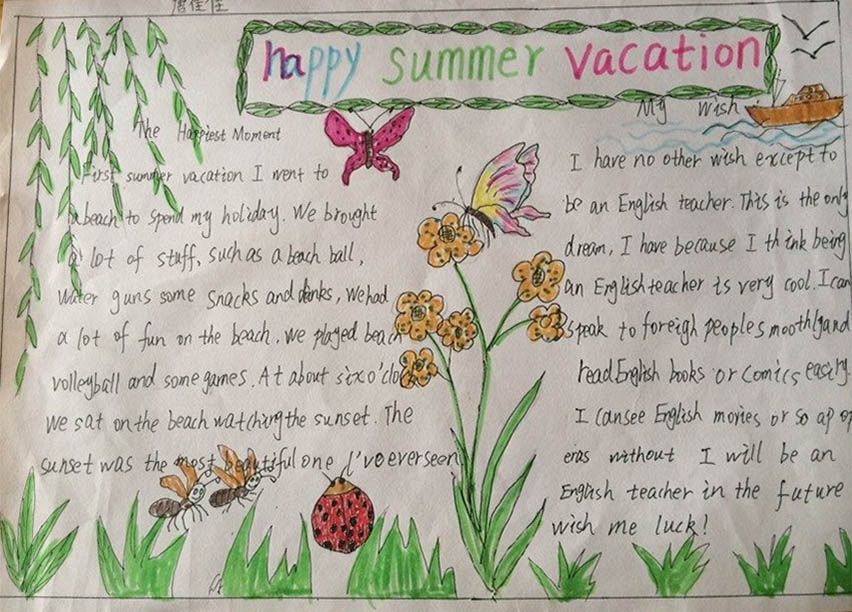 happy summer vacation
The Happiest Moment
First summer vacation I went to
a beach to spend my holiday. We brought
a lot of stuff, such as a beach ball,
water guns some snacks and drinks, We had
a lot of fun on the beach. We played beach
volleyball and some games. At about six o'clock
We sat on the beach watching the sunset. The
sunset was the most beautiful one I've ever seen
My Wish
I have no other wish except to
be an English teacher. This is the only
dream, I have because I think being
an English teacher is very cool. I can
speak to foreigh people smoothly and
read English books or comics easily.
I can see English movies or so ap op
eras without I will be an
English teacher in the future
wish me luck!